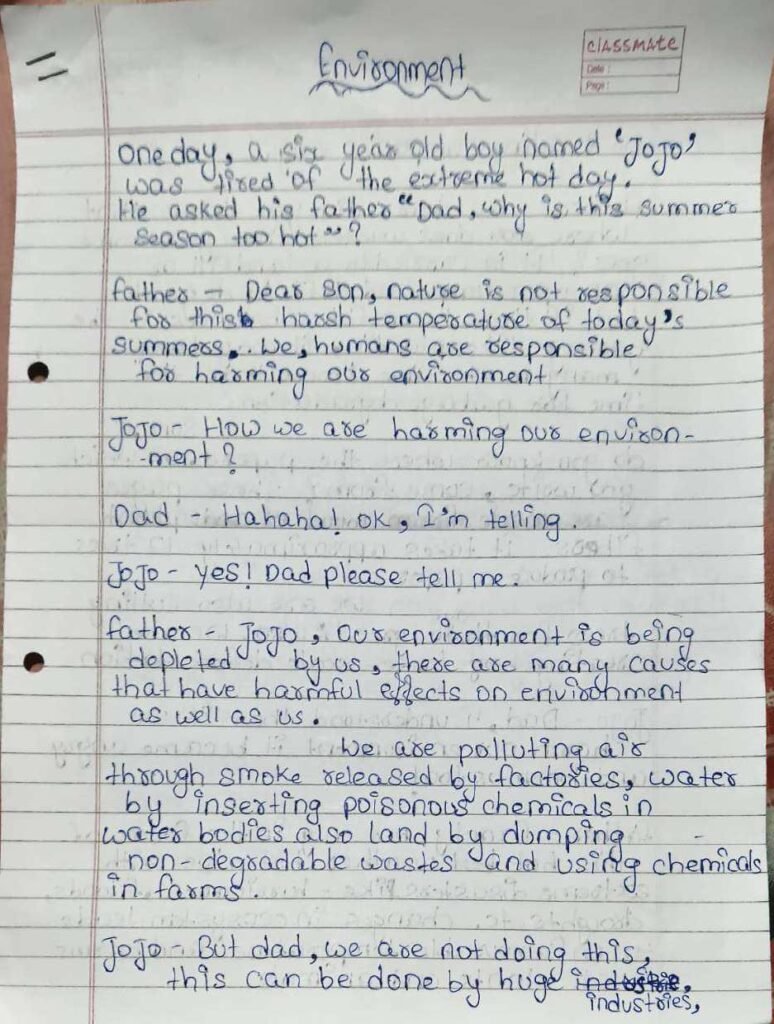 Environment
CLASSMATE
Date :
Page :
One day, a six year old boy named 'Jojo'
was tired of the extreme hot day.
He asked his father "Dad, why is this summer
season too hot" ?
father - Dear son, nature is not responsible
for this harsh temperature of today's
summers. We, humans are responsible
for harming our environment
Jojo - How we are harming our environ-
-ment ?
Dad - Hahaha! ok, I'm telling.
Jojo - yes! Dad please tell me.
father - Jojo, our environment is being
depleted by us, there are many causes
that have harmful effects on environment
as well as us.
We are polluting air
through smoke released by factories, water
by inserting poisonous chemicals in
water bodies also land by dumping
non-degradable wastes and using chemicals
in farms.
Jojo - But dad, we are not doing this,
this can be done by huge
industries,